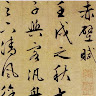 赤壁賦
壬戌之秋
子與客汎
之下清風徐